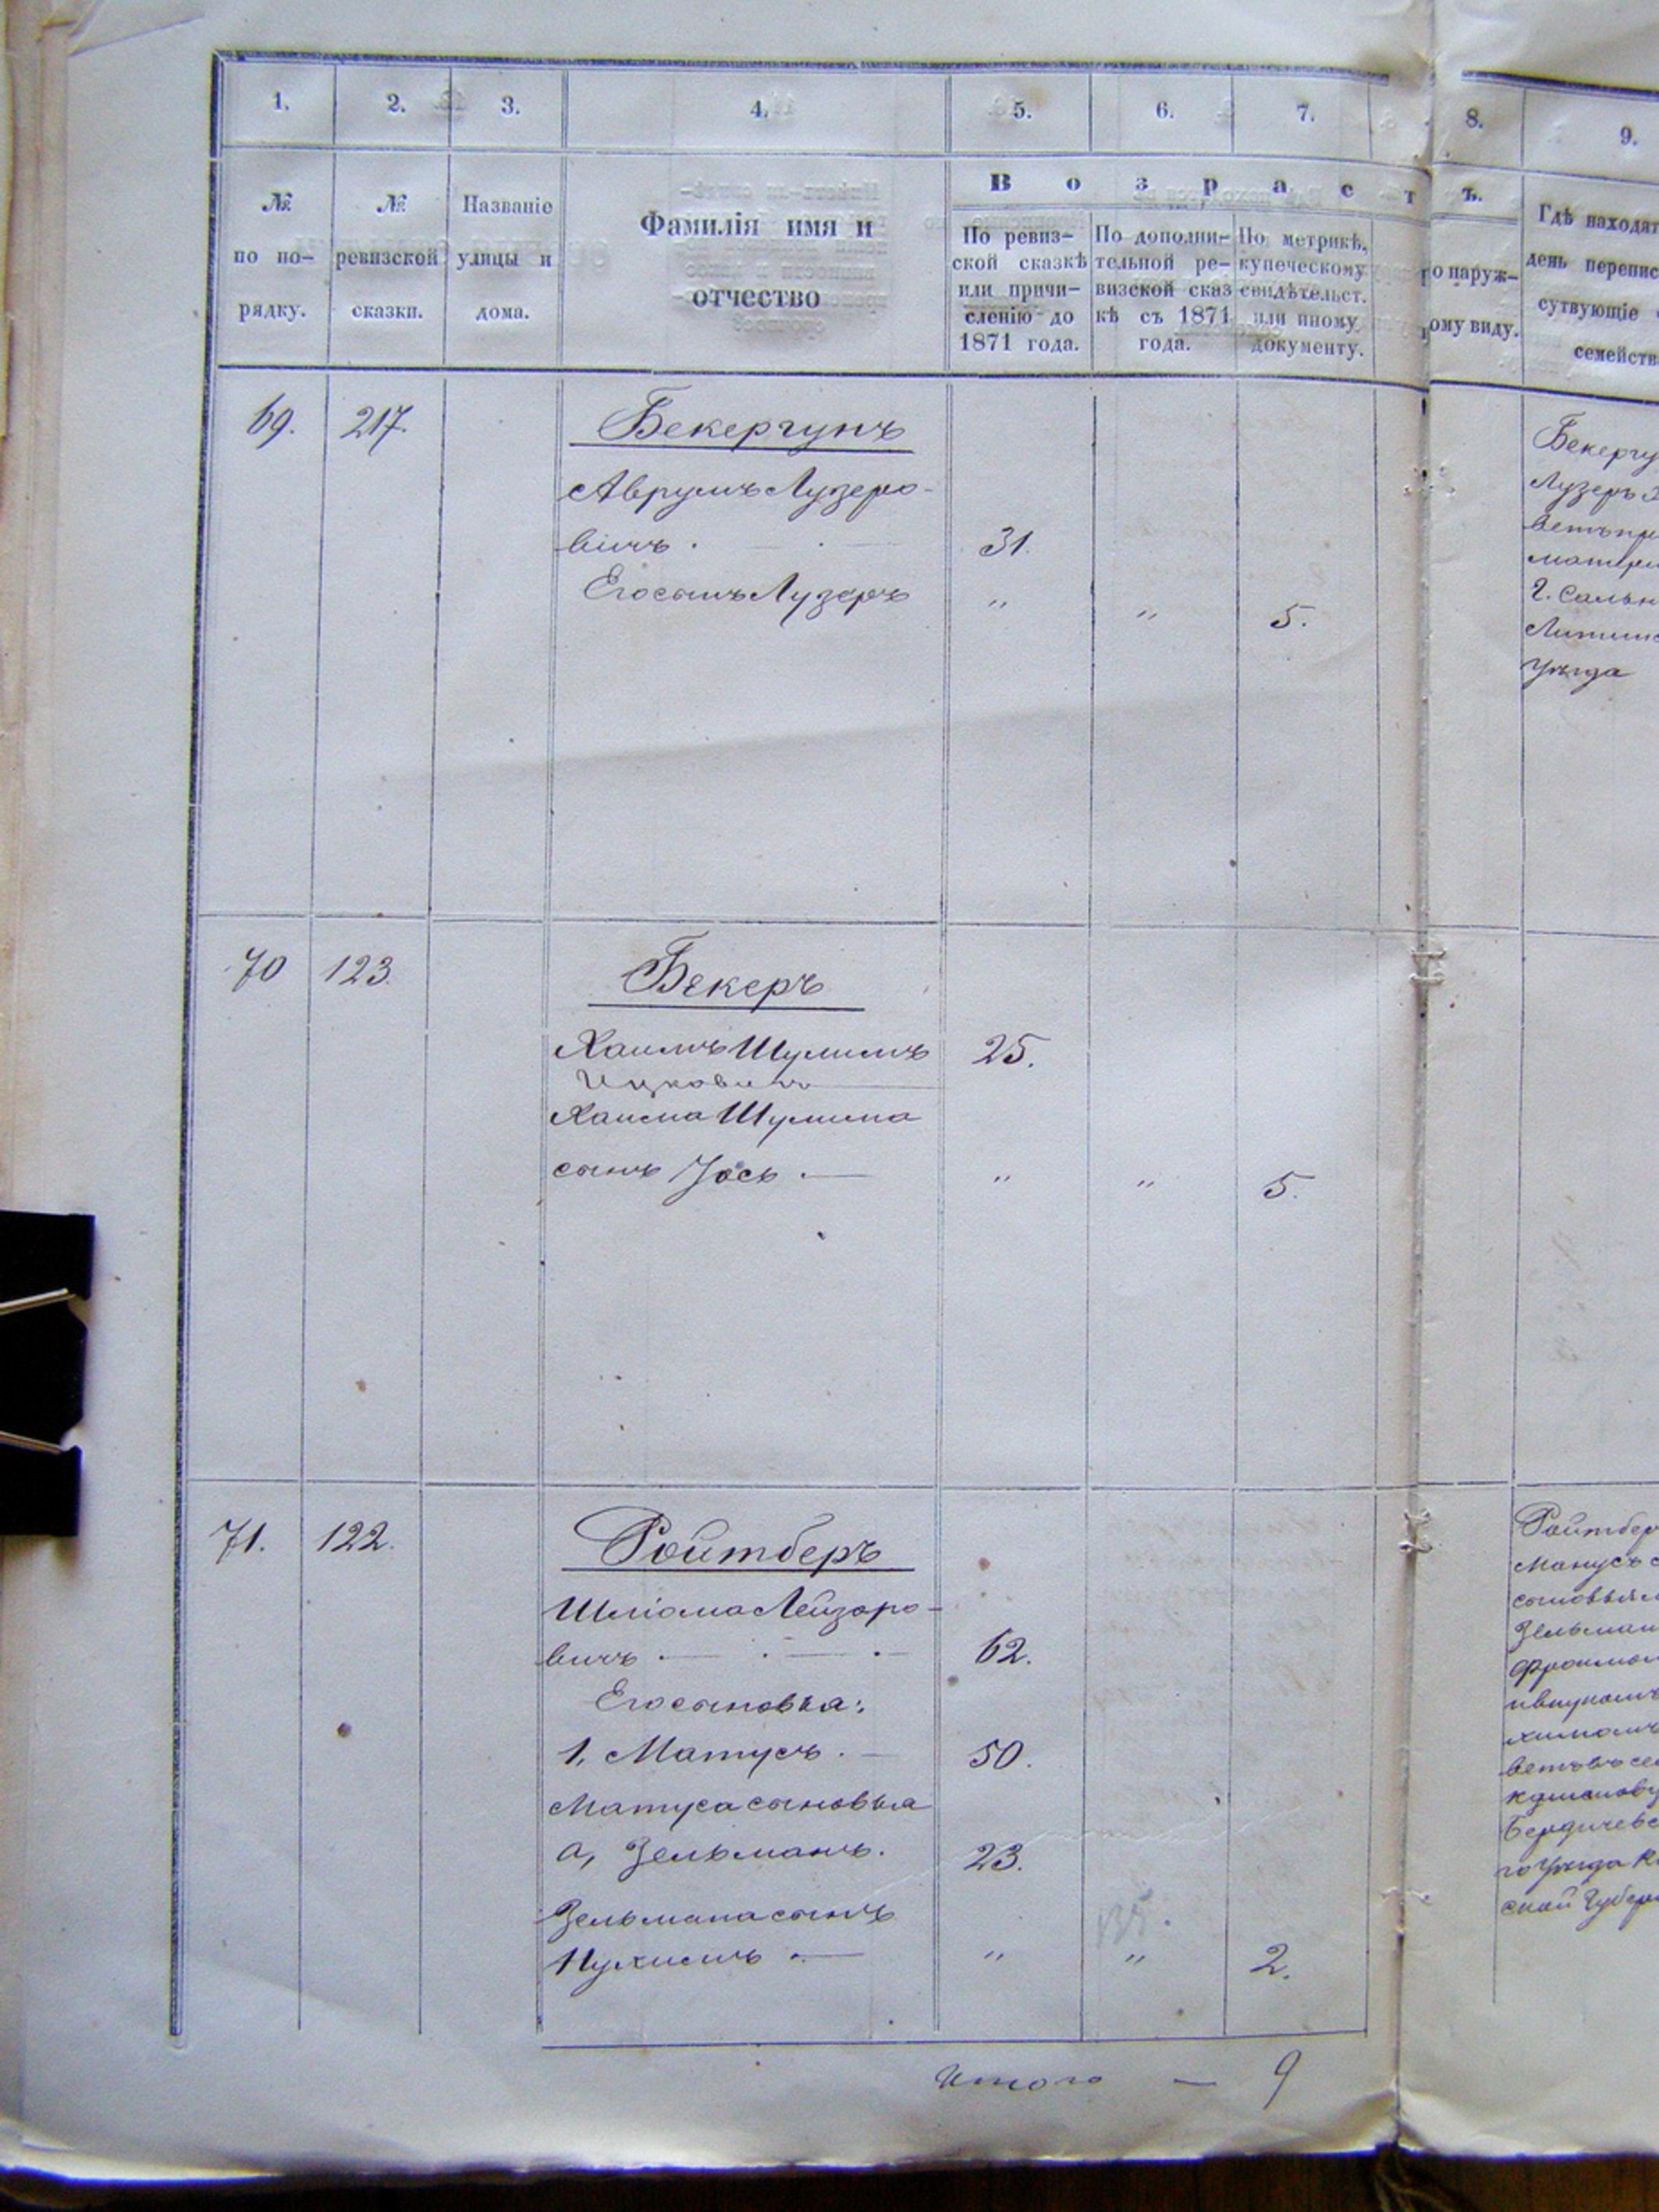 1. 2. 3. 4. 5. 6. 7. 8. 9.
№ по по- рядку.
№ ревизской сказки.
Названіе улицы и дома.
Фамилія имя и отчество
Возрастъ.
По ревиз-
ской сказкѣ
или причи-
сленію до
1871 года.
По дополни-
тельной ре-
визской сказ
кѣ съ 1871
года.
По метрикѣ,
купеческому
свидѣтельст.
или иному
документу.
о наруж-
ому виду.
Гдѣ находят
день перепис
сутвующіе
семейств
69. 217. Бекергунъ
Аврумъ Лузеро-
вичъ 31.
Его сынъ Лузеръ " " 5.
Бекергу
Лузеръ
матери
Уѣзда
70 123. Бекеръ
Хаимъ Шулимъ 25.
Ицковичъ
Хаима Шулима
сынъ Іось " " 5.
71. 122. Ройтберъ
Шліома Лейзоро-
вичъ 62.
Его сыновья:
1, Матусъ 50.
Матуса сыновья
а, Зельманъ. 23.
Зельмана сынъ
Нухимъ " " 2.
Ройтбер
сыновьям
Зельман
Бердичевс
го Уѣзда К
ской Губер
Итого — 9